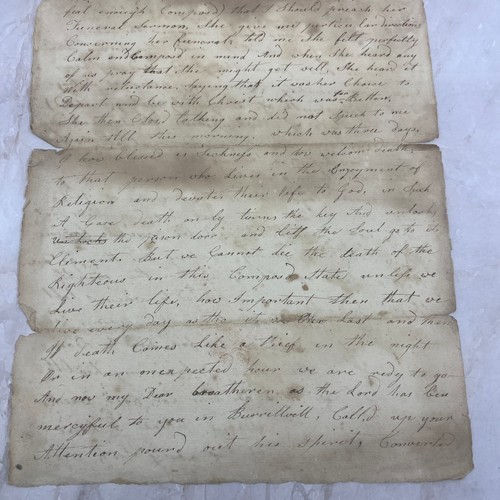 feal enough Composd that I Should preach her
Funeral Sermon, She give me particular directions
Concerning her funeral, told me She felt perfectly
Calm and Composd in mind And when She heard any
of us pray that She might get well, She heard it
With reluctance, Saying that it was her Choice to
Depart and be with Christ which was far Better,
She then Closd talking and did not Speak to me
Again till this morning, which was three days,
O how blessed is Sickness and how welcome death
to that person who lives in the Enjoyment of
Religion and devotes their life to God, in Such
A Case death only turns the key And unlocks
the prison door and lets the Soul go to its
Element. But we Cannot die the death of the
Righteous in this Composd State unless we
Live their life, how Important then that we
live every day as tho it was the last and then
If death Comes Like a thief in the night
Or in an unexpected hour we are redy to go
And now my Dear breatheren as the Lord has been
mercyful to you in Burrillvill, Calld up your
Attention pourd out his Spirit, Converted